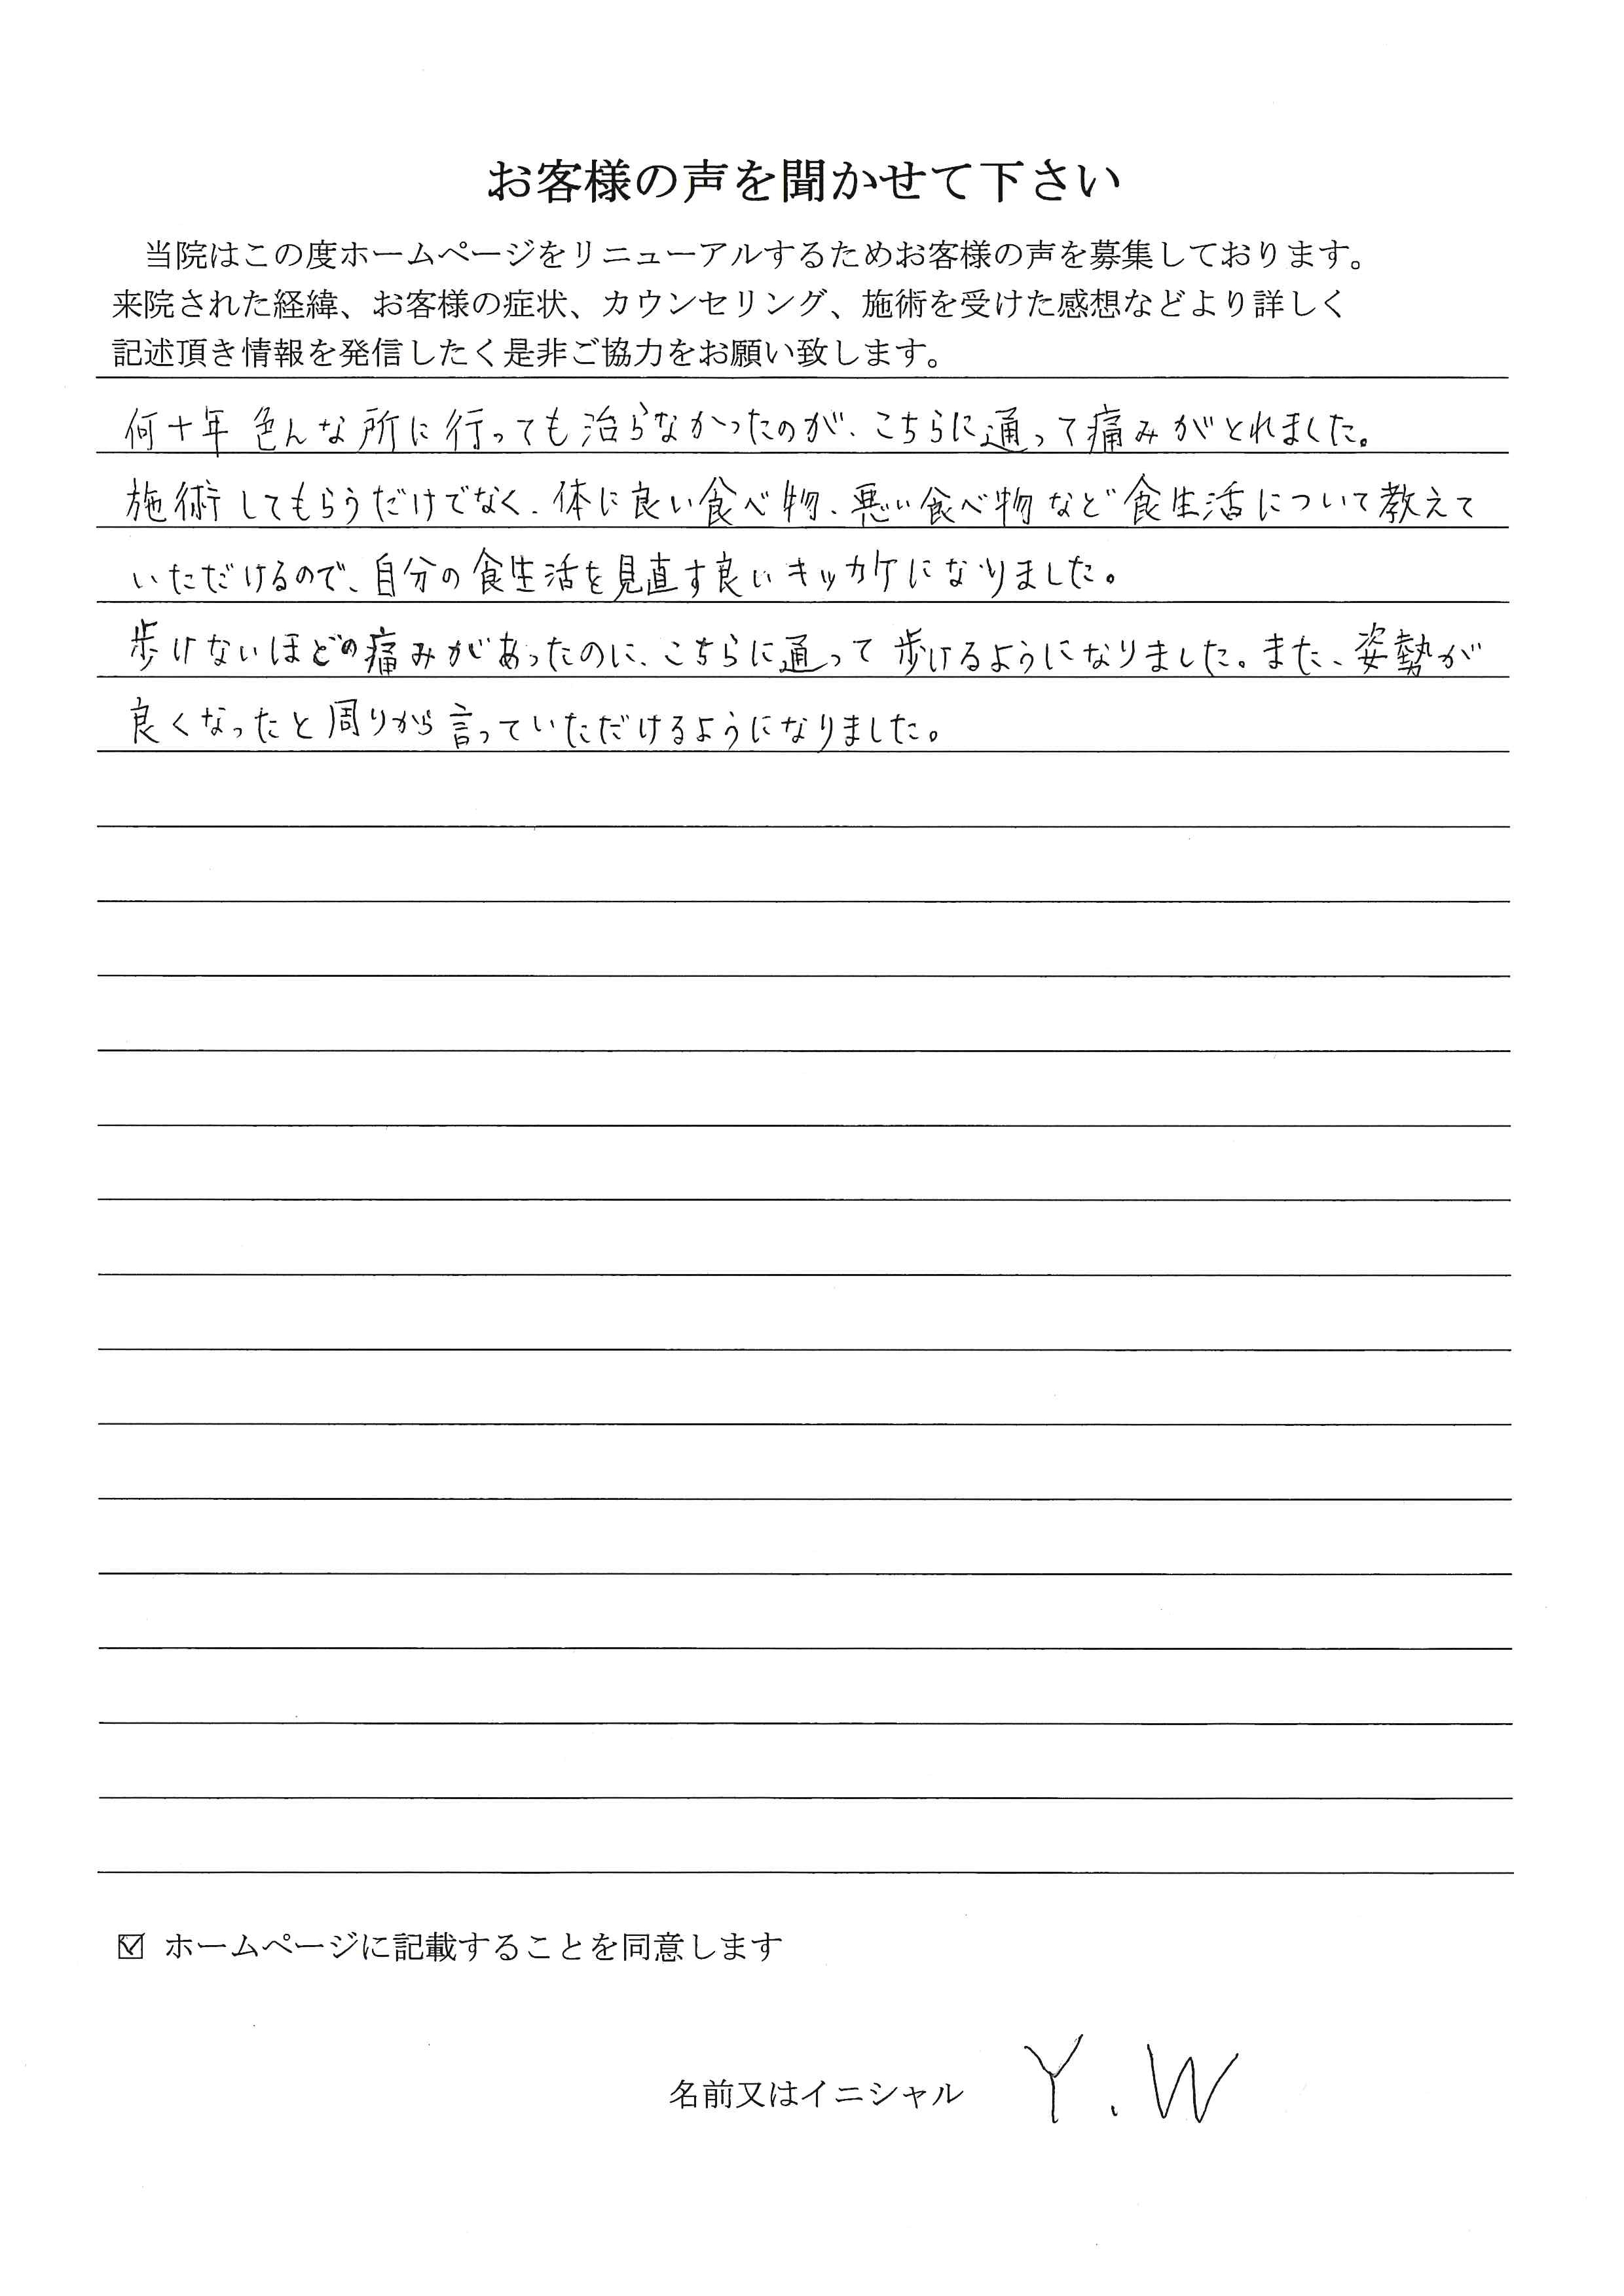 お客様の声を聞かせて下さい
当院はこの度ホームページをリニューアルするためお客様の声を募集しております。
来院された経緯、お客様の症状、カウンセリング、施術を受けた感想などより詳しく
記述頂き情報を発信したく是非ご協力をお願い致します。
何十年 色んな所に行っても治らなかったのが、こちらに通って痛みがとれました。
施術してもらうだけでなく、体に良い食べ物、悪い食べ物など食生活について教えて
いただけるので、自分の食生活を見直す良いキッカケになりました。
歩けないほどの痛みがあったのに、こちらに通って歩けるようになりました。また、姿勢が
良くなったと周りから言っていただけるようになりました。
☑ ホームページに記載することを同意します
名前又はイニシャル Y.W